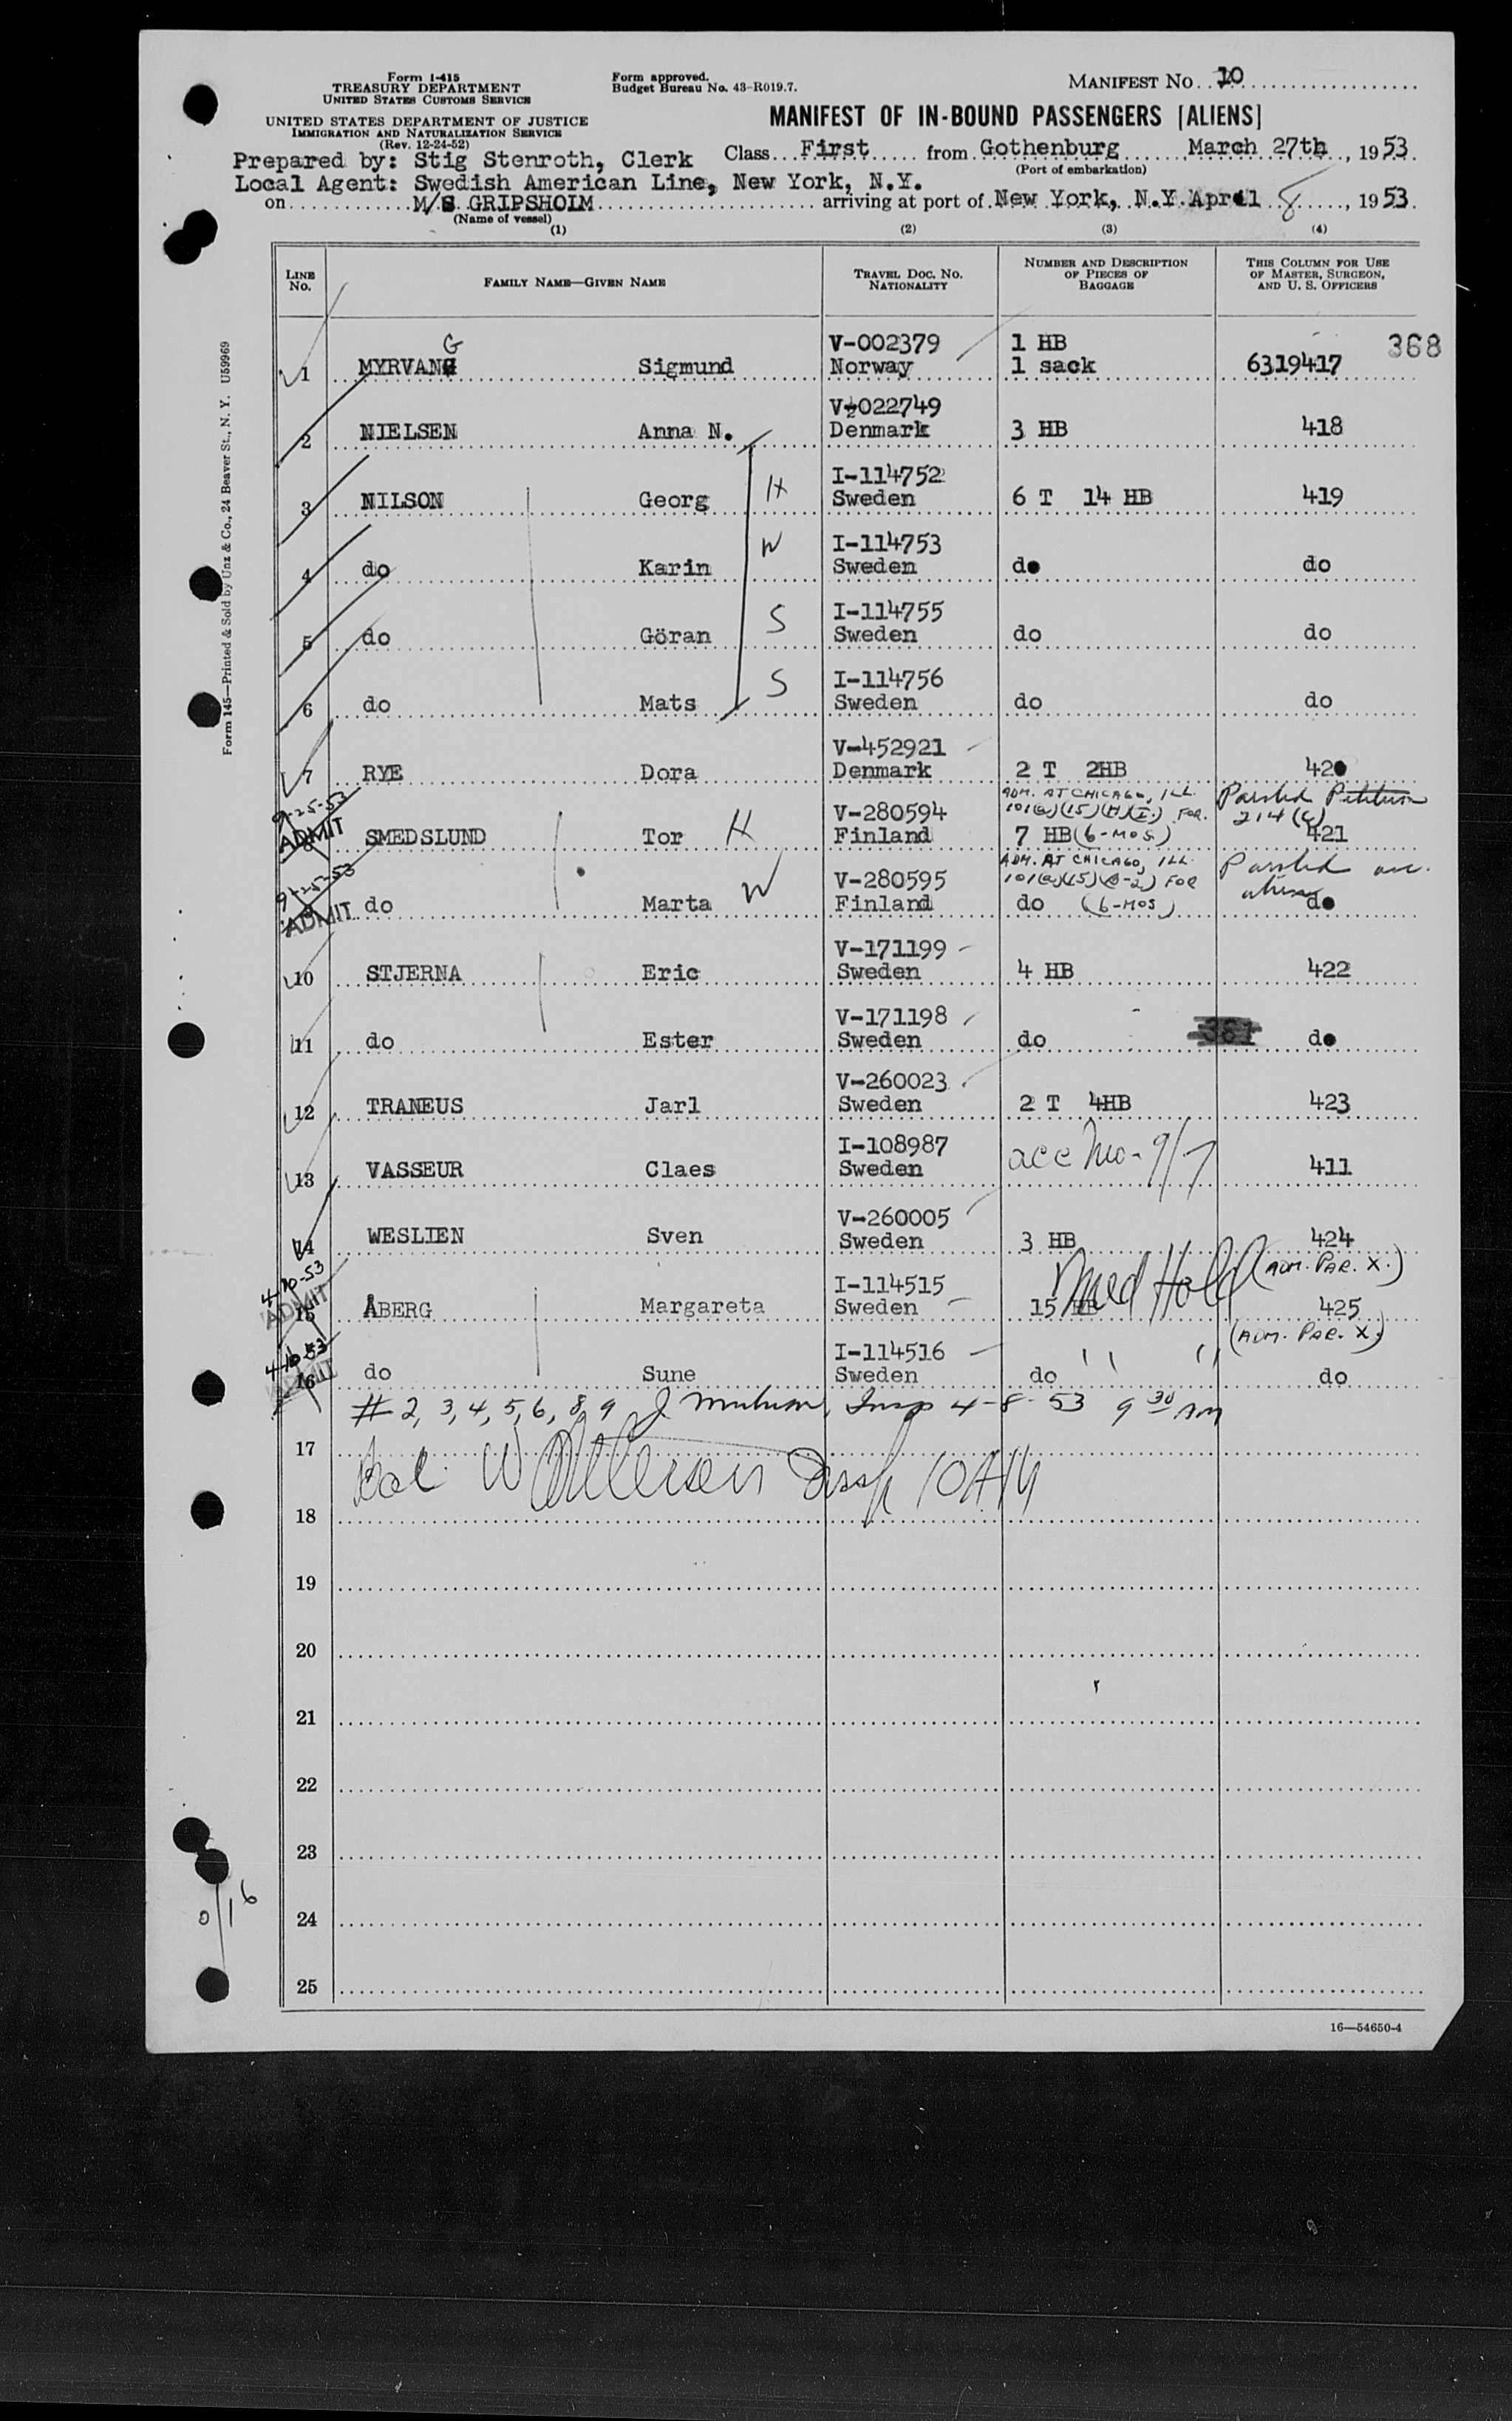 Form I-415
TREASURY DEPARTMENT
UNITED STATES CUSTOMS SERVICE
UNITED STATES DEPARTMENT OF JUSTICE
IMMIGRATION AND NATURALIZATION SERVICE
(Rev. 12-24-52)
Form approved.
Budget Bureau No. 43-R019.7.
MANIFEST NO. 10
MANIFEST OF IN-BOUND PASSENGERS [ALIENS]
Prepared by: Stig Stenroth, Clerk Class First from Gothenburg March 27th, 1953.
(Port of embarkation)
Local Agent: Swedish American Line, New York, N.Y.
on M/S GRIPSHOLM arriving at port of New York, N.Y. April 8, 1953.
(Name of vessel)
(1) (2) (3) (4)
LINE NO. FAMILY NAME—GIVEN NAME TRAVEL DOC. NO. NATIONALITY NUMBER AND DESCRIPTION OF PIECES OF BAGGAGE THIS COLUMN FOR USE OF MASTER, SURGEON, AND U. S. OFFICERS
368
G V-002379 1 HB
1 MYRVANG Sigmund Norway 1 sack 6319417
V-022749
2 NIELSEN Anna N. Denmark 3 HB 418
I-114752
3 NILSON Georg H Sweden 6 T 14 HB 419
I-114753
4 do Karin W Sweden do do
I-114755
5 do Göran S Sweden do do
I-114756
6 do Mats S Sweden do do
V-452921
7 RYE Dora Denmark 2 T 2HB 420
9-25-53 ADM. AT CHICAGO, ILL. Parsled Petition
ADMIT V-280594 101(a)(15)(H)(I) FOR. 214(c)
8 SMEDSLUND Tor H Finland 7 HB (6-MOS) 421
9-25-53 ADM. AT CHICAGO, ILL.
V-280595 101(a)(15)(B-2) FOR
9 ADMIT do Marta W Finland do (6-MOS) do
V-171199
10 STJERNA Eric Sweden 4 HB 422
V-171198
11 do Ester Sweden do 361 do
V-260023
12 TRANEUS Jarl Sweden 2 T 4HB 423
I-108987
13 VASSEUR Claes Sweden acc No-9/7 411
V-260005
14 WESLIEN Sven Sweden 3 HB 424
4-10-53 Med Hold (ADM. PAR. X.)
ADMIT I-114515
15 ÅBERG Margareta Sweden 15 HB 425
4-10-53 (ADM. PAR. X.)
ADMIT I-114516
16 do Sune Sweden do " " do
# 2, 3, 4, 5, 6, 8, 9 J Insp 4-8-53 9 30 AM
17
Bal W Insp 10 AM
18
19
20
21
22
23
24
25
0/16
Form 145—Printed & Sold by Unz & Co., 24 Beaver St., N. Y. U59969
16—54650-4